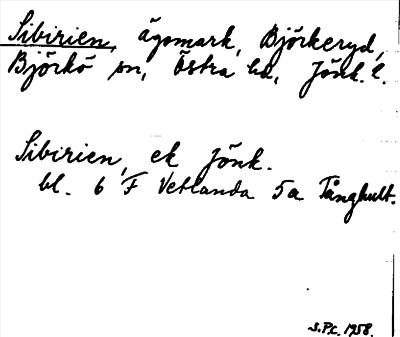 Sibirien, ägomark, Björkeryd,
Björkö sn, Östra hd, Jönk. l.
Sibirien, ek Jönk.
bl. 6 F Vetlanda 5a Tånghult.
S.Pt. 1958.